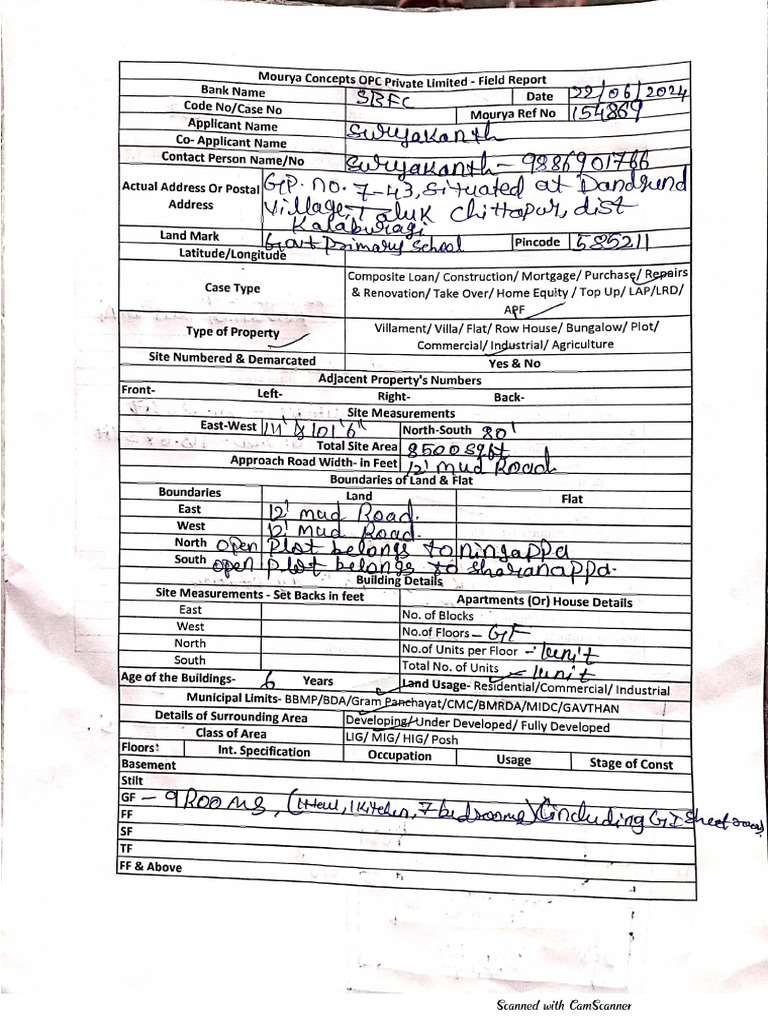 Mourya Concepts OPC Private Limited - Field Report
Bank Name SBFC Date 22/06/2024
Code No/Case No Mourya Ref No 154869
Applicant Name Suryakanth
Co- Applicant Name
Contact Person Name/No Suryakanth - 9886901766
Actual Address Or Postal Address GP. no. 7-43, Situated at Dandgund
Village, Taluk Chittapur, dist
Kalaburagi
Land Mark Govt Primary School Pincode 585211
Latitude/Longitude
Case Type Composite Loan/ Construction/ Mortgage/ Purchase/ Repairs
& Renovation/ Take Over/ Home Equity / Top Up/ LAP/LRD/
APF
Type of Property Villament/ Villa/ Flat/ Row House/ Bungalow/ Plot/
Commercial/ Industrial/ Agriculture
Site Numbered & Demarcated Yes & No
Adjacent Property's Numbers
Front- Left- Right- Back-
Site Measurements
East-West 111' & 101'6" North-South 80'
Total Site Area 8500 sqft
Approach Road Width- in Feet 12' mud Road
Boundaries of Land & Flat
Boundaries Land Flat
East 12' mud Road.
West 12' mud Road.
North open plot belongs to ningappa
South open plot belongs to Sharanappa.
Building Details
Site Measurements - Set Backs in feet Apartments (Or) House Details
East No. of Blocks
West No.of Floors - GF
North No.of Units per Floor - 1unit
South Total No. of Units - 1unit
Age of the Buildings- 6 Years Land Usage- Residential/Commercial/ Industrial
Municipal Limits- BBMP/BDA/Gram Panchayat/CMC/BMRDA/MIDC/GAVTHAN
Details of Surrounding Area Developing/Under Developed/ Fully Developed
Class of Area LIG/ MIG/ HIG/ Posh
Floors Int. Specification Occupation Usage Stage of Const
Basement
Stilt
GF - 9 Rooms, (1Hall, 1Kitchen, 7 bedrooms) (including GI Sheet
FF
SF
TF
FF & Above
Scanned with CamScanner